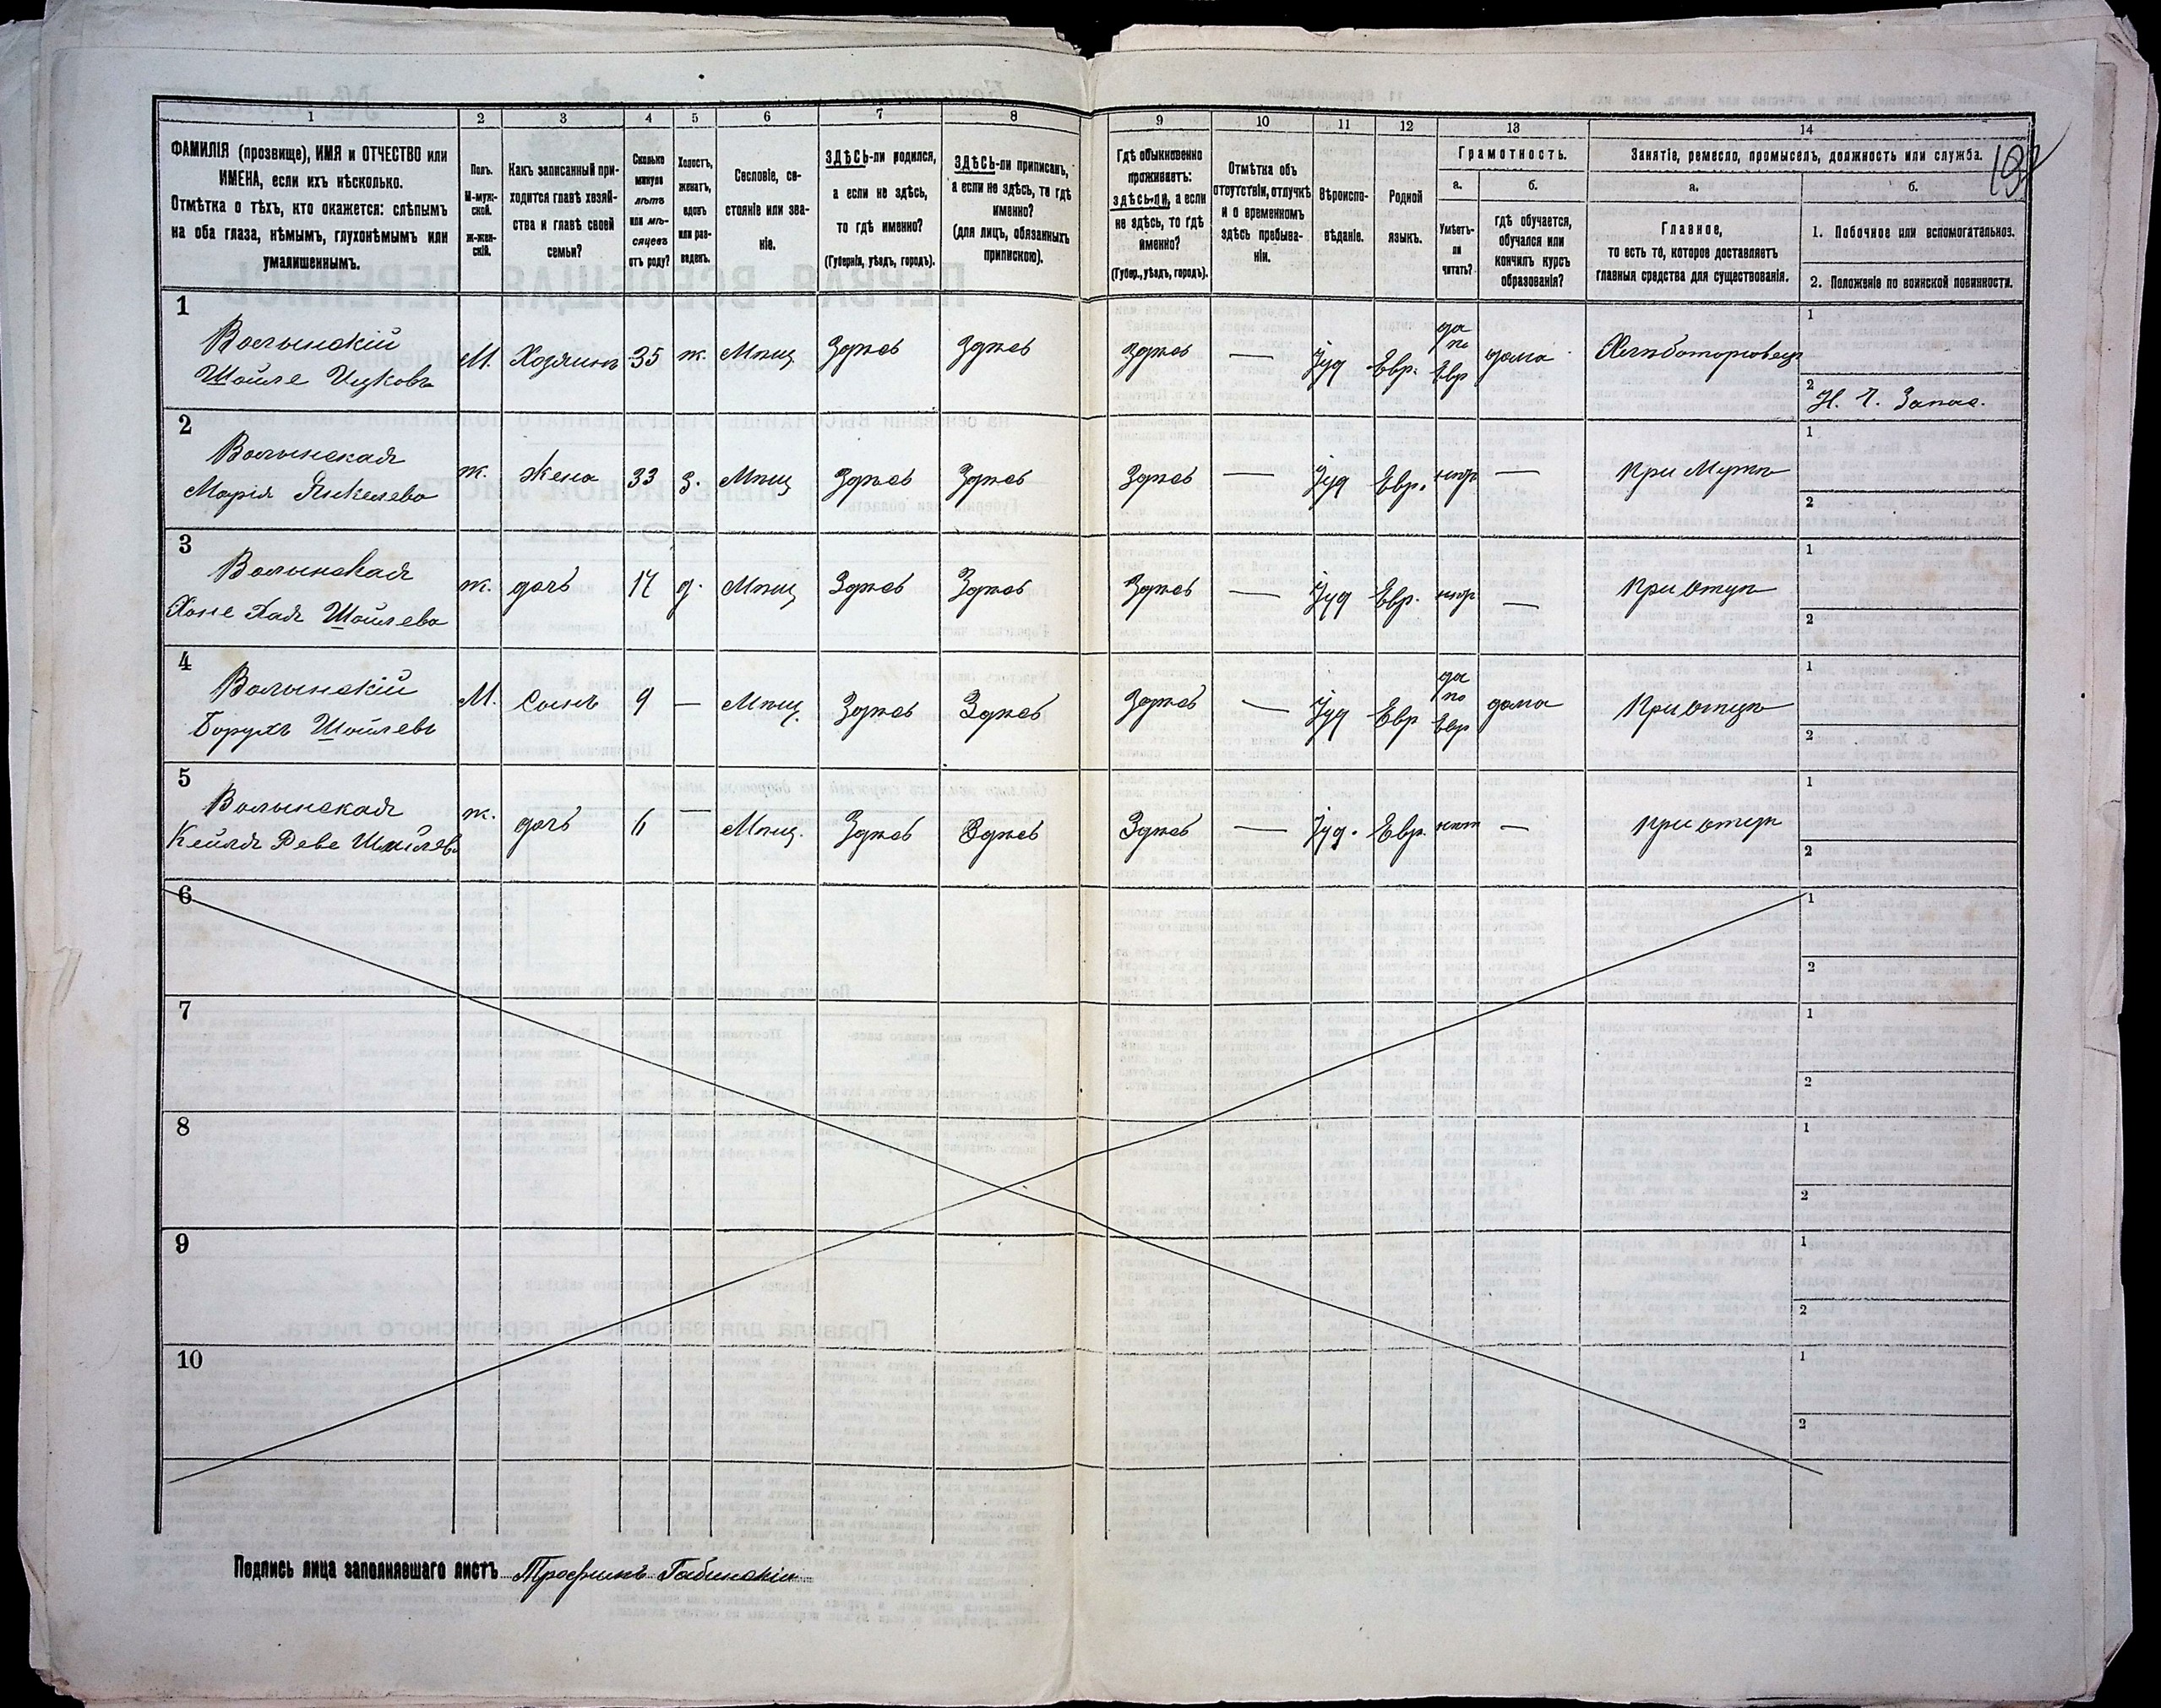 1 2 3 4 5 6 7 8 9 10 11 12 13 14
ФАМИЛІЯ (прозвище), ИМЯ и ОТЧЕСТВО или
ИМЕНА, если ихъ нѣсколько.
Отмѣтка о тѣхъ, кто окажется: слѣпымъ
на оба глаза, нѣмымъ, глухонѣмымъ или
умалишеннымъ.
Полъ.
М-муж-
ской.
Ж-жен-
скій.
Какъ записанный при-
ходится главѣ хозяй-
ства и главѣ своей
семьи?
Сколько
минуло
лѣтъ
или мѣ-
сяцевъ
отъ роду?
Холостъ,
женатъ,
вдовъ
или раз-
веденъ.
Сословіе, со-
стояніе или зва-
ніе.
ЗДѢСЬ-ли родился,
а если не здѣсь,
то гдѣ именно?
(Губернія, уѣздъ, городъ).
ЗДѢСЬ-ли приписанъ,
а если не здѣсь, то гдѣ
именно?
(для лицъ, обязанныхъ
припискою).
Гдѣ обыкновенно
проживаетъ:
здѣсь-ли, а если
не здѣсь, то гдѣ
именно?
(Губер., уѣздъ, городъ).
Отмѣтка объ
отсутствіи, отлучкѣ
и о временномъ
здѣсь пребыва-
ніи.
Вѣроиспо-
вѣданіе.
Родной
языкъ.
Грамотность.
а.
Умѣетъ-
ли
читать?
б.
гдѣ обучается,
обучался или
кончилъ курсъ
образованія?
Занятіе, ремесло, промыселъ, должность или служба.
а.
Главное,
то есть то, которое доставляетъ
главныя средства для существованія.
б.
1. Побочное или вспомогательное.
2. Положеніе по воинской повинности.
1
Волынскій
Шойле Ицковъ
М. Хозяинъ 35 ж. Мѣщ Здѣсь Здѣсь Здѣсь — Іуд Евр. да по Евр дома Хлѣботорговецъ
1
2 Н. Ч. Запас.
2
Волынская
Марія Янкелева
ж. Жена 33 з. Мѣщ Здѣсь Здѣсь Здѣсь — Іуд Евр. нѣт — при Мужѣ
1
2
3
Волынская
Хая Шойлева
ж. дочь д. Мѣщ Здѣсь Здѣсь Здѣсь — Іуд Евр. нѣт — При отцѣ
1
2
4
Волынскій
Борухъ Шойлевъ
М. Сынъ 9 — Мѣщ. Здѣсь Здѣсь Здѣсь — Іуд Евр да по Евр дома При отцѣ
1
2
5
Волынская
Кейля Шойлев
ж. дочь 6 — Мѣщ. Здѣсь Здѣсь Здѣсь — Іуд. Евр. нѣт — при отцѣ
1
2
6
1
2
7
1
2
8
1
2
9
1
2
10
1
2
Подпись лица заполнявшаго листъ Габинскій